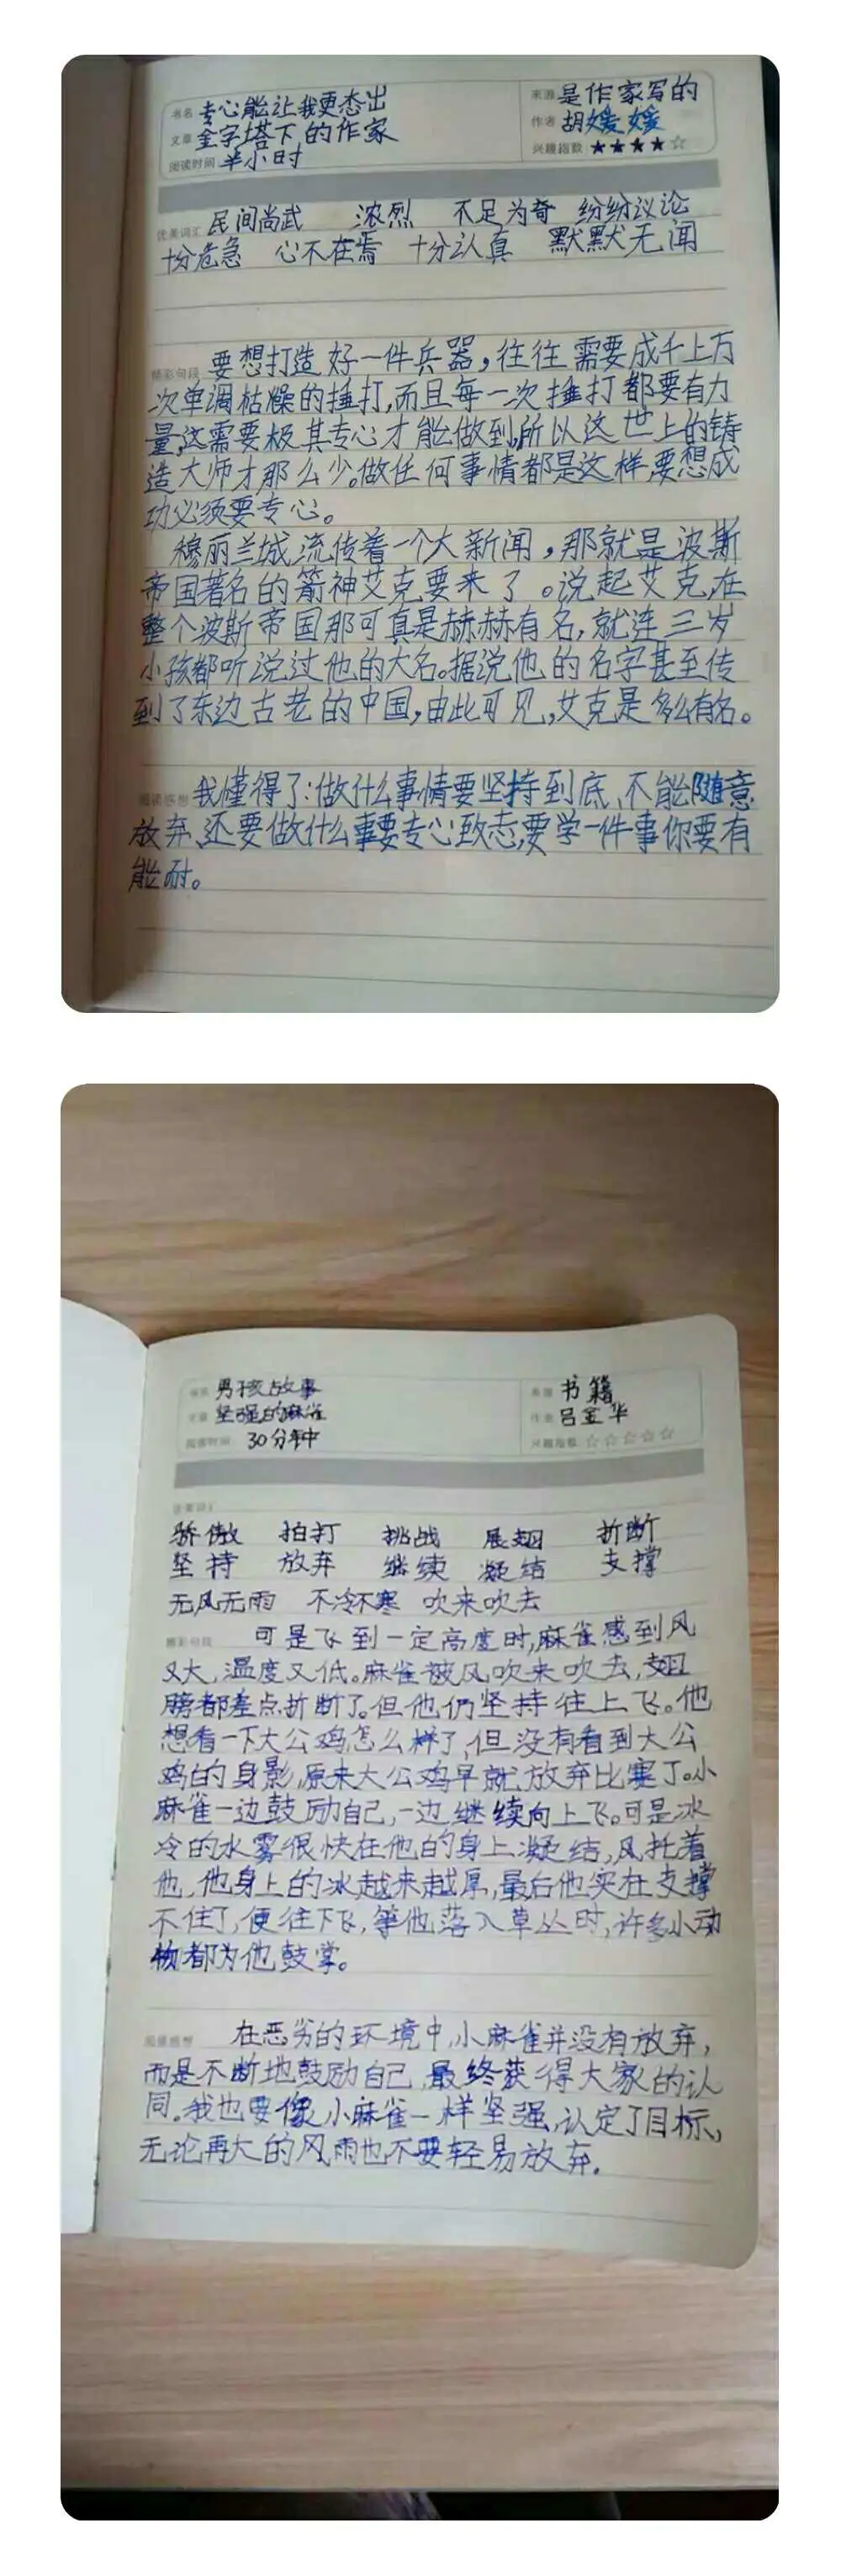 书名 专心能让我更杰出
文章 金字塔下的作家
阅读时间 半小时
来源 是作家写的
作者 胡媛媛
兴趣指数 ★★★★☆
优美词汇 民间尚武 浓烈 不足为奇 纷纷议论
十分危急 心不在焉 十分认真 默默无闻
精彩句段 要想打造好一件兵器,往往需要成千上万
次单调枯燥的捶打,而且每一次捶打都要有力
量,这需要极其专心才能做到,所以这世上的铸
造大师才那么少。做任何事情都是这样,要想成
功必须要专心。
穆丽兰城流传着一个大新闻,那就是波斯
帝国著名的箭神艾克要来了。说起艾克,在
整个波斯帝国那可真是赫赫有名,就连三岁
小孩都听说过他的大名。据说他的名字甚至传
到了东边古老的中国,由此可见,艾克是多么有名。
阅读感想 我懂得了:做什么事情要坚持到底、不能随意
放弃、还要做什么事要专心致志,要学一件事你要有
能耐。
书名 男孩故事
文章 坚强的麻雀
阅读时间 30分钟
来源 书籍
作者 吕金华
兴趣指数 ☆☆☆☆☆
优美词汇
骄傲 拍打 挑战 展翅 折断
坚持 放弃 继续 凝结 支撑
无风无雨 不冷不寒 吹来吹去
精彩句段 可是飞到一定高度时,麻雀感到风
又大,温度又低。麻雀被风吹来吹去,翅
膀都差点折断了。但他们坚持往上飞。他
想看一下大公鸡怎么样了,但没有看到大公
鸡的身影,原来大公鸡早就放弃比赛了。小
麻雀一边鼓励自己,一边继续向上飞。可是冰
冷的水雾很快在他的身上凝结,风托着
他,他身上的冰越来越厚,最后他实在支撑
不住了,便往下飞,等他落入草丛时,许多小动
物都为他鼓掌。
阅读感想 在恶劣的环境中,小麻雀并没有放弃,
而是不断地鼓励自己,最终获得大家的认
同。我也要像小麻雀一样坚强,认定了目标,
无论再大的风雨也不要轻易放弃.